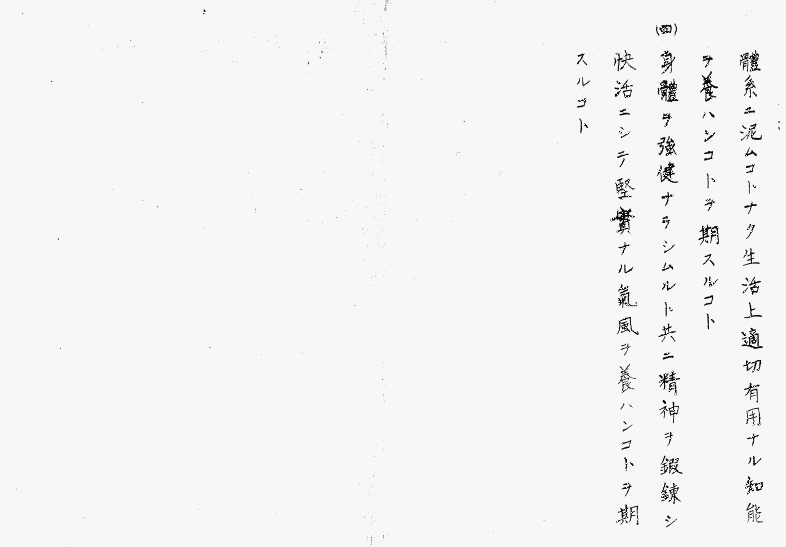 體系ニ泥ムコトナク生活上適切有用ナル知能
ヲ養ハンコトヲ期スルコト
(四)身體ヲ強健ナラシムルト共ニ精神ヲ鍜錬シ
快活ニシテ堅實ナル氣風ヲ養ハンコトヲ期
スルコト